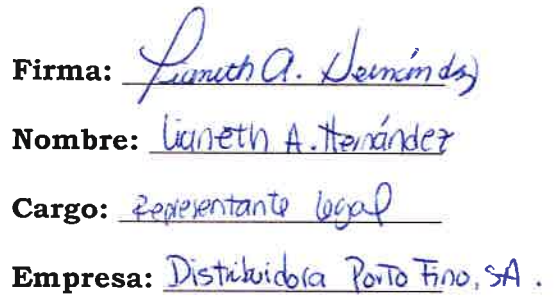 Firma: Lianeth A. Hernández
Nombre: Lianeth A. Hernández
Cargo: Representante legal
Empresa: Distribuidora Porto Fino, SA.